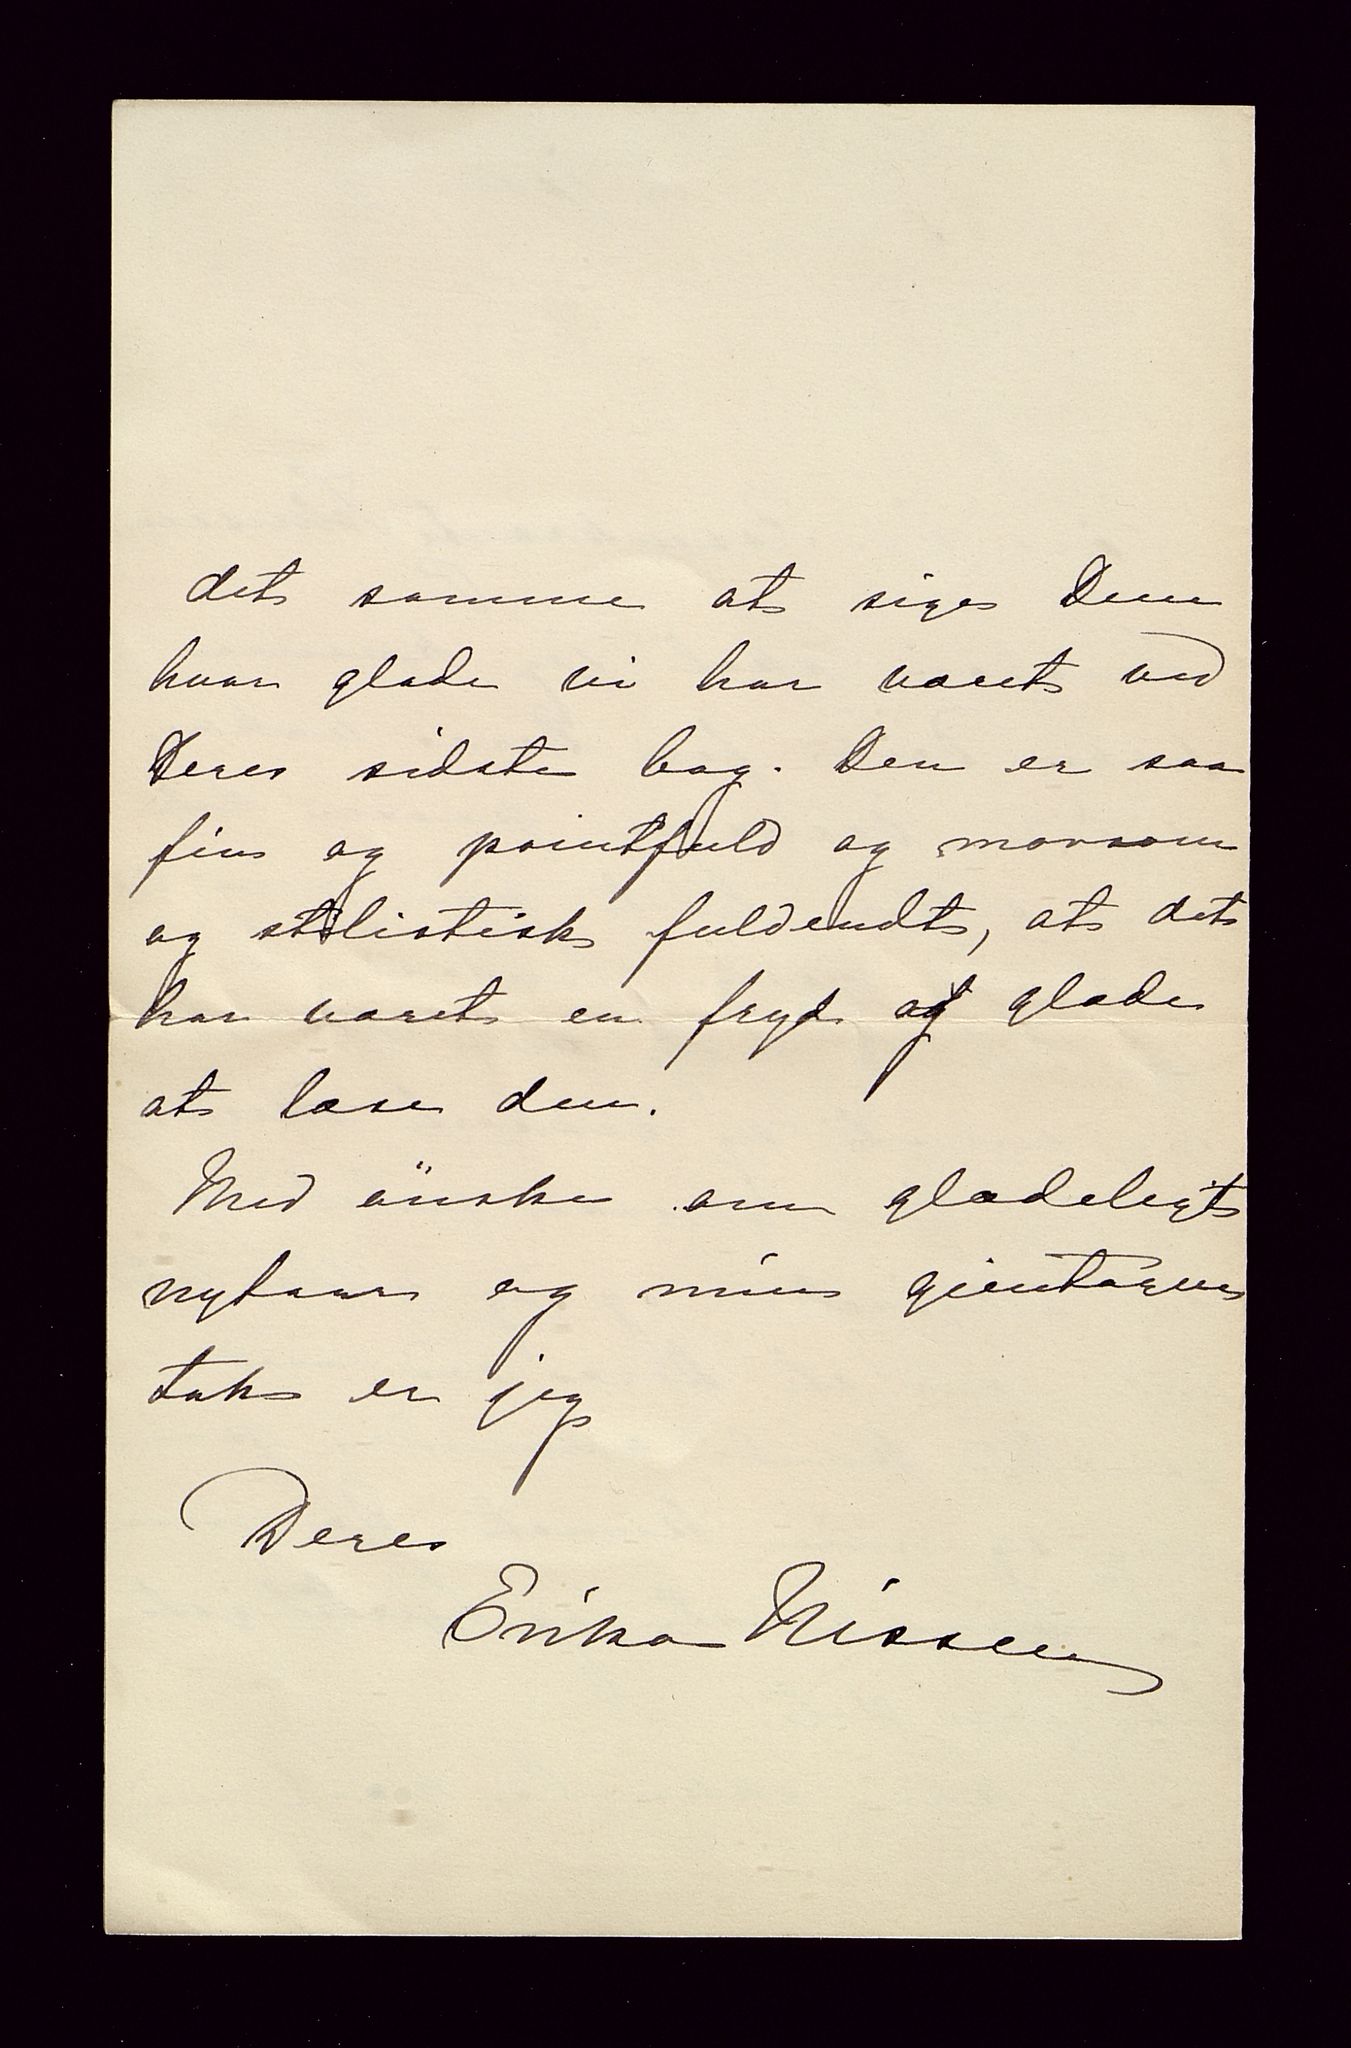 det samme at sige Dem
hvor glade vi har været ved
Deres sidste bog. Den er saa
fin og pointfuld og morsom
og stilistisk fuldendt, at det
har været en fryd og glæde
at læse den.
Med önske om glædeligt
nytaar og min gjentagne
tak er jeg
Deres
Erika Nissen